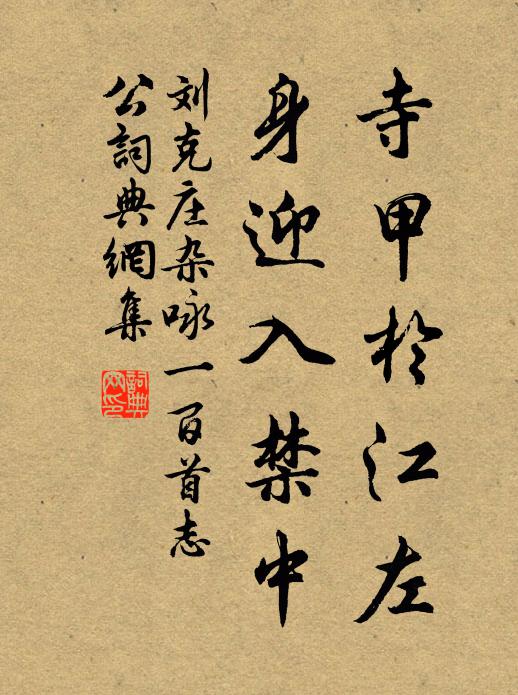 寺甲於江左
身迎入禁中
刘克庄杂咏一百首志
公詞典網集
詞典
网印